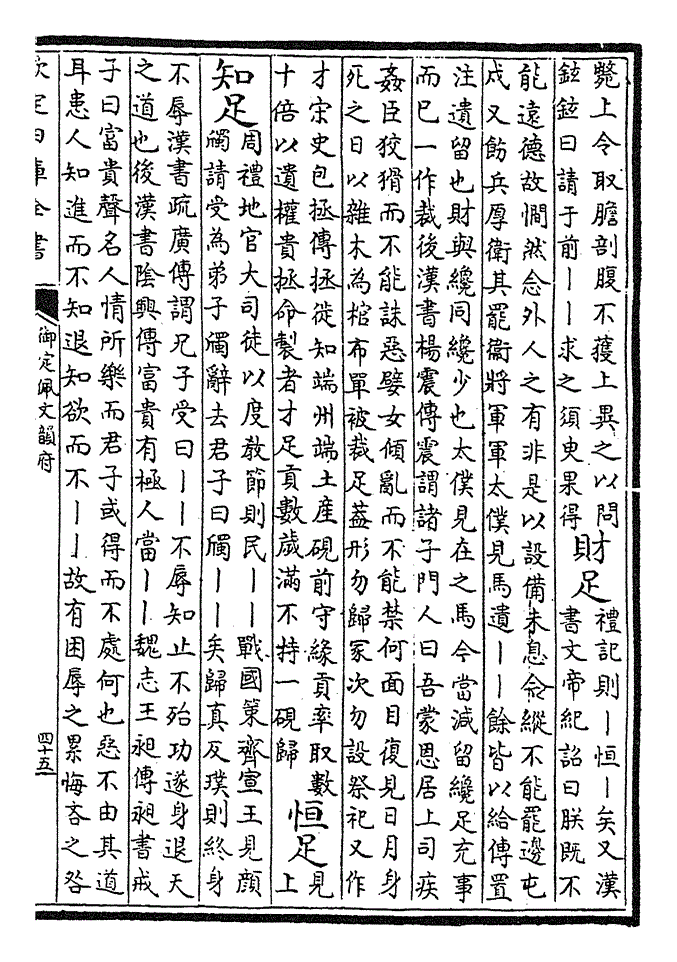 斃上令取膽剖腹不獲上異之以問
鉉鉉曰請于前丨丨求之須臾果得
財足
禮記則丨恒丨矣又漢
書文帝紀詔曰朕既不
能遠德故憪然念外人之有非是以設備未息今縱不能罷邊屯
戍又飭兵厚衛其罷衞將軍軍太僕見馬遺丨丨餘皆以給傳置
注遺留也財與纔同纔少也太僕見在之馬今當減留纔足充事
而已一作裁後漢書楊震傳震謂諸子門人曰吾蒙恩居上司疾
姦臣狡猾而不能誅惡嬖女傾亂而不能禁何面目復見日月身
死之日以雜木為棺布單被裁足蓋形勿歸冢次勿設祭祀又作
才宋史包拯傳拯徙知端州端土產硯前守緣貢率取數
十倍以遺權貴拯命製者才足貢數歲滿不持一硯歸
恒足
見
上
知足
周禮地官大司徒以度教節則民丨丨戰國策齊宣王見顏
斶請受為弟子斶辭去君子曰斶丨丨矣歸真反璞則終身
不辱漢書疏廣傳謂兄子受曰丨丨不辱知止不殆功遂身退天
之道也後漢書陰興傳富貴有極人當丨丨魏志王昶傳昶書戒
子曰富貴聲名人情所樂而君子或得而不處何也惡不由其道
耳患人知進而不知退知欲而不丨丨故有困辱之累悔吝之咎
欽定四庫全書
御定佩文韻府
四十五